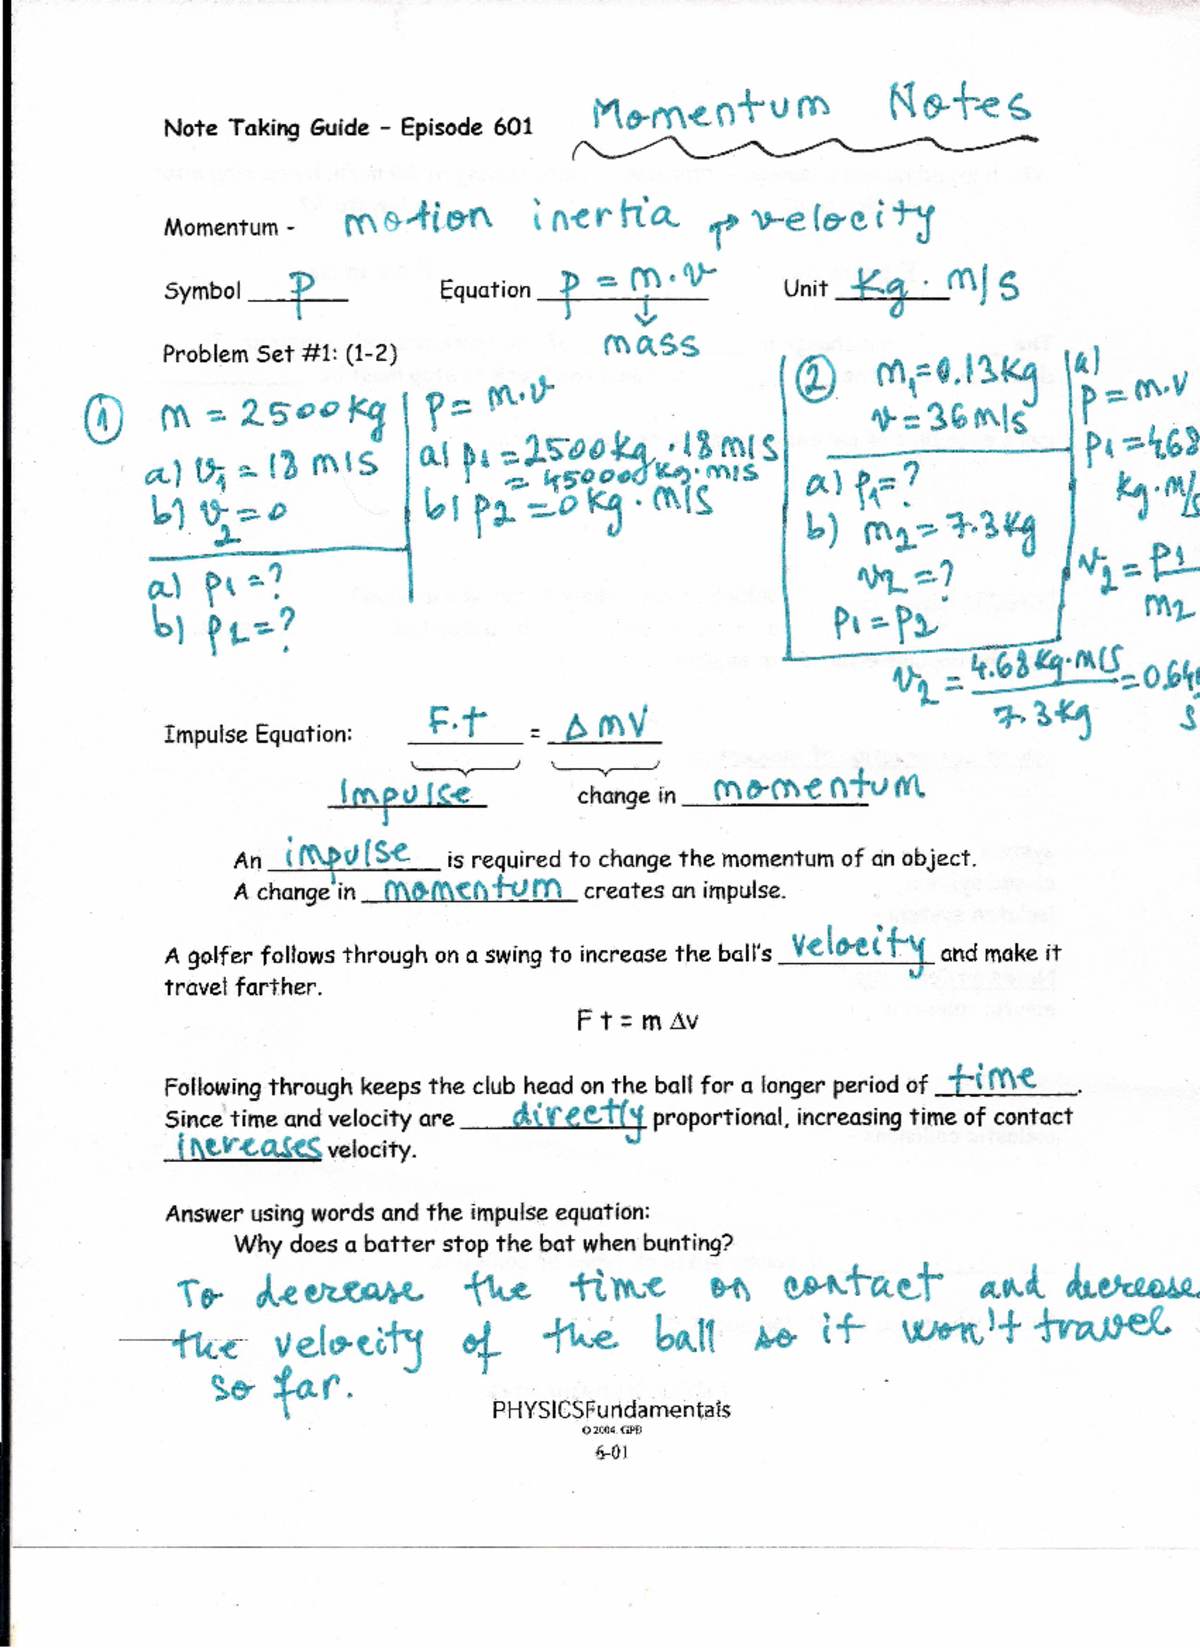 Note Taking Guide - Episode 601 Momentum Notes
Momentum - motion inertia → velocity
Symbol p Equation p = m·v Unit Kg · m/s
mass
Problem Set #1: (1-2)
① m = 2500kg
a) v₁ = 18 m/s
b) v₂ = 0
a) p₁ = ?
b) p₂ = ?
p = m·v
a) p₁ = 2500kg · 18 m/s
= 45000 kg·m/s
b) p₂ = 0 kg · m/s
② m₁ = 0.13kg
v = 36 m/s
a) p₁ = ?
b) m₂ = 7.3kg
v₂ = ?
p₁ = p₂
a)
p = m·v
p₁ = 4.68
kg·m/s
v₂ = p₁/m₂
v₂ = 4.68 kg·m/s / 7.3kg = 0.64
Impulse Equation: F·t = Δ mv
Impulse change in momentum
An impulse is required to change the momentum of an object.
A change in momentum creates an impulse.
A golfer follows through on a swing to increase the ball's velocity and make it
travel farther.
F t = m Δv
Following through keeps the club head on the ball for a longer period of time.
Since time and velocity are directly proportional, increasing time of contact
increases velocity.
Answer using words and the impulse equation:
Why does a batter stop the bat when bunting?
To decrease the time on contact and decrease
the velocity of the ball so it won't travel
so far.
PHYSICSFundamentals
© 2004, GPB
6-01